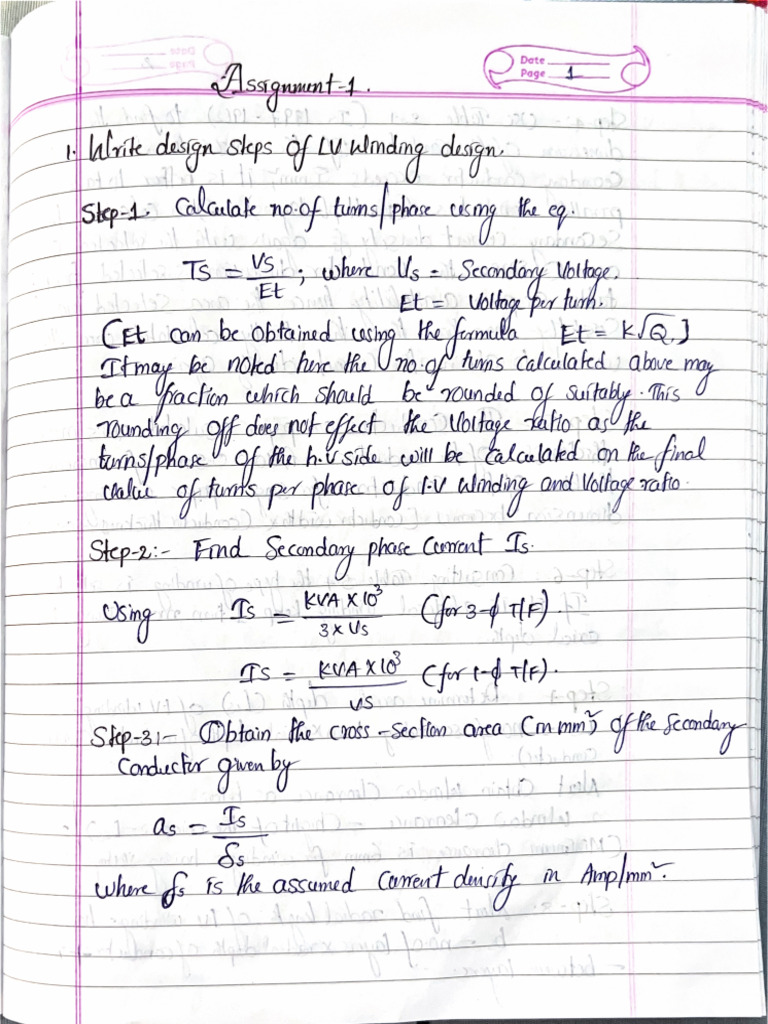 Date
Page 1
Assignment-1.
1. Write design steps of LV winding design.
Step-1. Calculate no.of turns/phase using the eq.
Ts = Vs/Et ; where Vs = Secondary Voltage.
Et = Voltage per turn.
(Et can be obtained using the formula Et = K√Q.)
It may be noted here the no.of turns calculated above may
be a fraction which should be rounded of suitably. This
rounding off does not effect the Voltage ratio as the
turns/phase of the h.v side will be calculated on the final
value of turns per phase of l.v winding and voltage ratio.
Step-2:- Find Secondary phase Current Is.
Using Is = KVA×10³/3×Vs (for 3-ϕ T/F).
Is = KVA×10³/Vs (for 1-ϕ T/F).
Step-3:- Obtain the cross-section area (in mm²) of the secondary
Conductor given by
as = Is/δs
where δs is the assumed current density in Amp/mm².